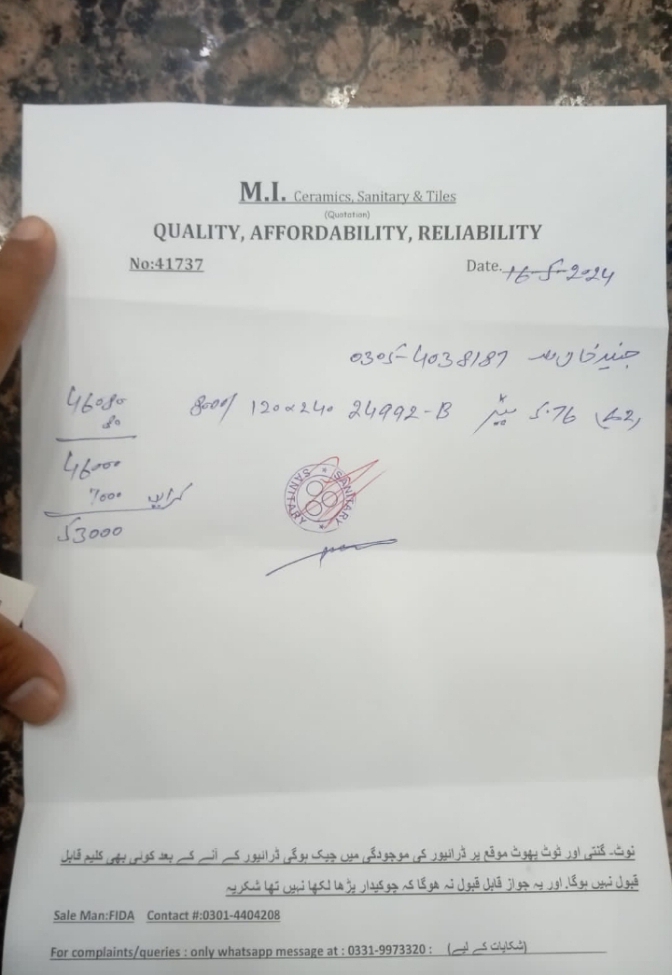 M.I. Ceramics, Sanitary & Tiles
(Quotation)
QUALITY, AFFORDABILITY, RELIABILITY
No:41737 Date. 16-5-2024
جنید خان 0305-4038187
5.76 میٹر 24992-B 120x240 8000/ 46080
80
46000
کرایہ 7000
53000
SANITARY * SANITARY *
نوٹ۔ گنتی اور ٹوٹ پھوٹ موقع پر ڈرائیور کی موجودگی میں چیک ہوگی ڈرائیور کے آنے کے بعد کوئی بھی کلیم قابل
قبول نہیں ہوگا۔ اور یہ جواز قابل قبول نہ ہوگا کہ چوکیدار پڑھا لکھا نہیں تھا شکریہ
Sale Man:FIDA Contact #:0301-4404208
For complaints/queries : only whatsapp message at : 0331-9973320 : (شکایات کے لیے)